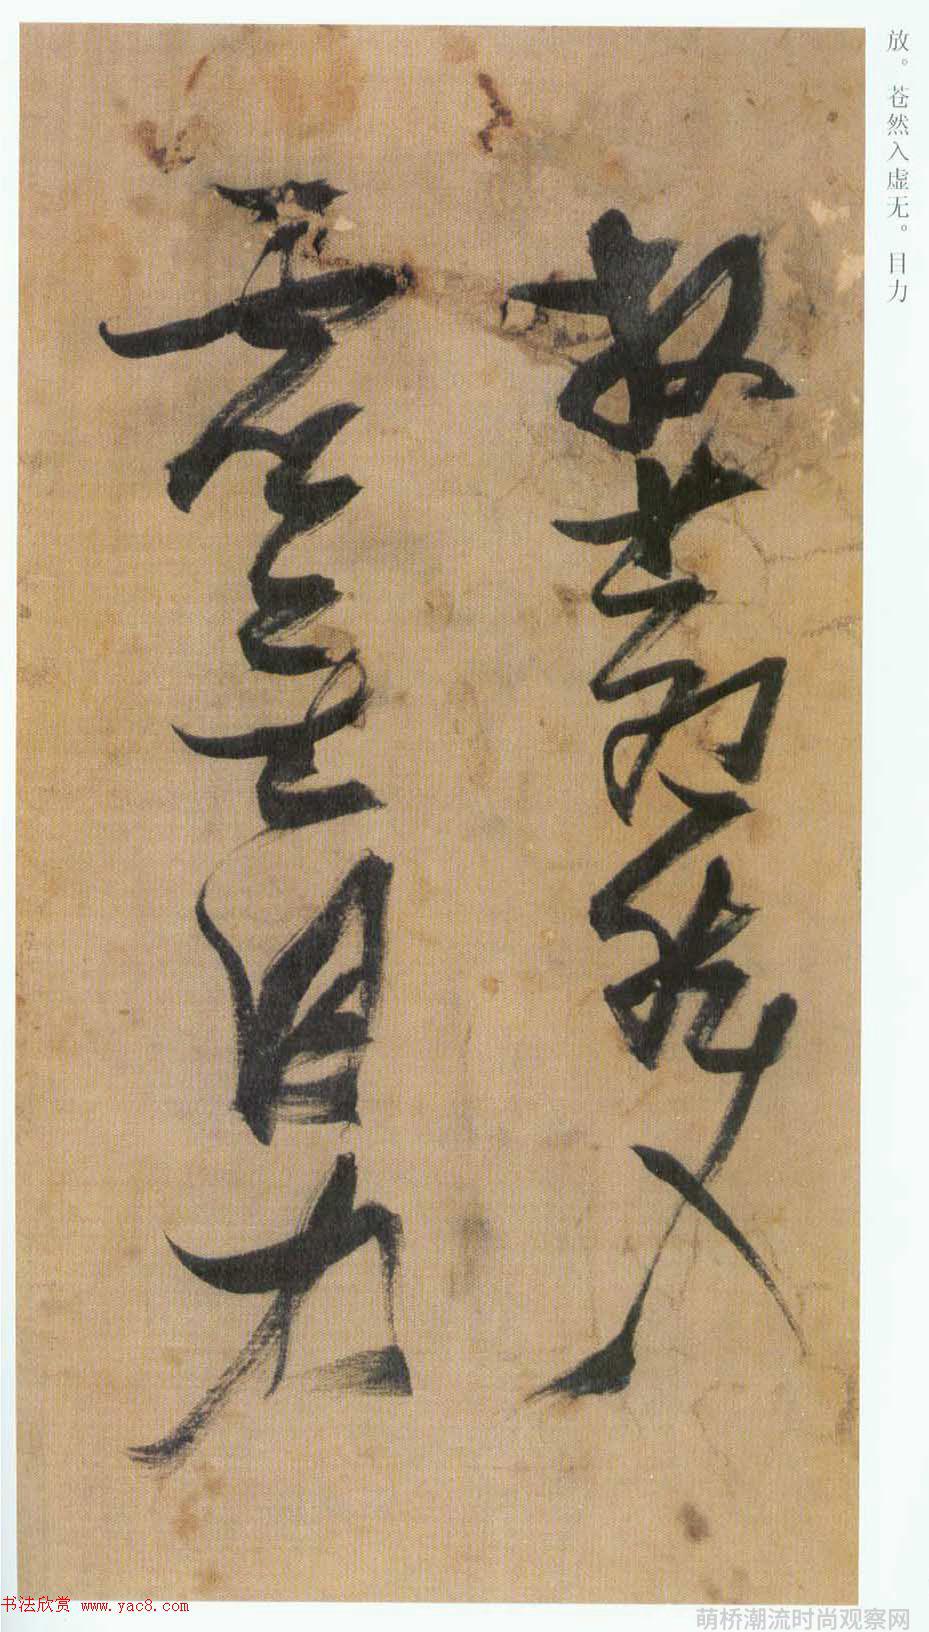 放。苍然入虚无。目力
放苍然入
虚无目力
书法欣赏 www.yac8.com
萌桥潮流时尚观察网